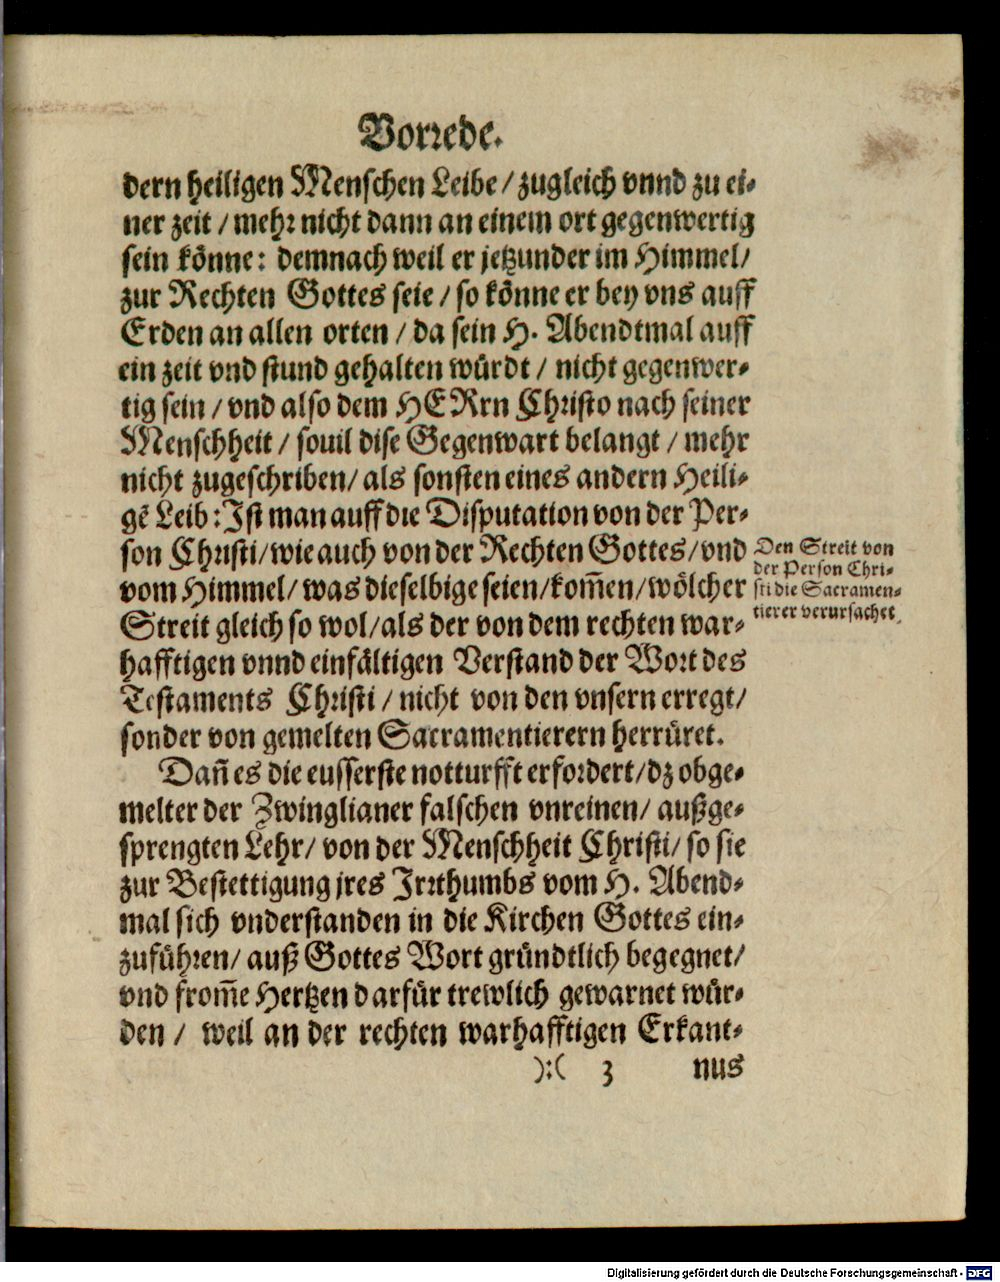 Vorrede.
dern heiligen Menschen Leibe / zugleich vnnd zu ei⸗
ner zeit / mehr nicht dann an einem ort gegenwertig
sein könne: demnach weil er jetzunder im Himmel /
zur Rechten Gottes seie / so könne er bey vns auff
Erden an allen orten / da sein H. Abendtmal auff
ein zeit vnd stund gehalten würdt / nicht gegenwer⸗
tig sein / vnd also dem HERrn Christo nach seiner
Menschheit / souil dise Gegenwart belangt / mehr
nicht zugeschriben / als sonsten eines andern Heili⸗
gē Leib: Ist man auff die Disputation von der Per⸗
son Christi / wie auch von der Rechten Gottes / vnd
vom Himmel / was dieselbige seien / kom̄en / wölcher
Streit gleich so wol / als der von dem rechten war⸗
hafftigen vnnd einfältigen Verstand der Wort des
Testaments Christi / nicht von den vnsern erregt /
sonder von gemelten Sacramentierern herrüret.
Dan̄ es die eusserste notturfft erfordert / dz obge⸗
melter der Zwinglianer falschen vnreinen / außge⸗
sprengten Lehr / von der Menschheit Christi / so sie
zur Bestettigung jres Irrthumbs vom H. Abend⸗
mal sich vnderstanden in die Kirchen Gottes ein⸗
zuführen / auß Gottes Wort gründtlich begegnet /
vnd from̄e Hertzen darfür trewlich gewarnet wür⸗
den / weil an der rechten warhafftigen Erkant⸗
):( 3 nus
Den Streit von
der Person Chri⸗
sti die Sacramen⸗
tierer verursachet.
Digitalisierung gefördert durch die Deutsche Forschungsgemeinschaft - DFG